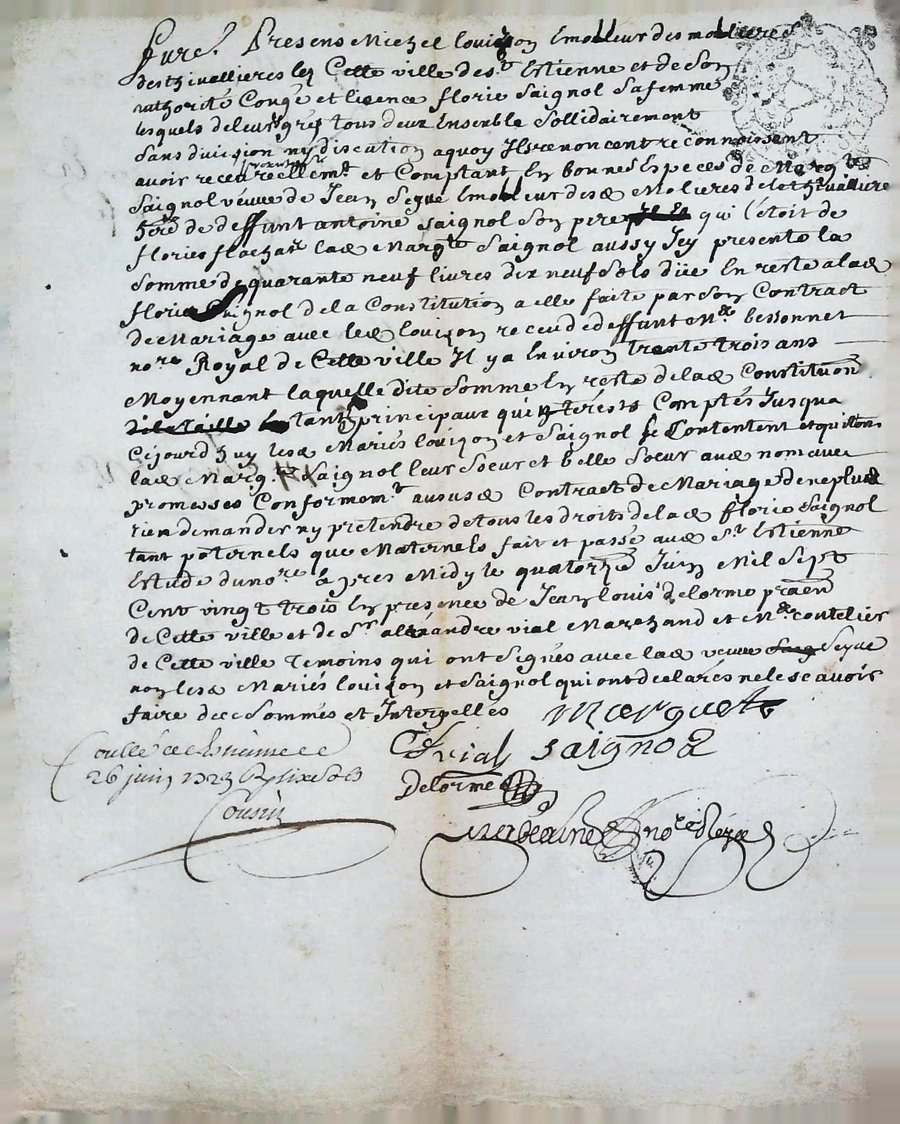 Furent Presens Michel Louison Emolleur des molieres
des Chivallieres lez Cette ville de St Estienne et de Son
authorité Congé et licence florie Saignol Sa femme
lesquels de leurs grés tous deux Ensemble Sollidairement
Sans division ny discution a quoy Ils renoncent reconnoissent
avoir receu reellemt et Comptant En bonnes Especes de Margte
Saignol veuve de Jean Seyue Emolleur desd Molieres de le Chivalliere
here de deffunt antoine Saignol Son pere qui l'étoit de
florie flachat lad Margte Saignol aussy Icy presente la
Somme de quarante neuf livres dix neuf Sols düe En reste a lad
florie Saignol de la Constitution a elle faite par Son Contract
de Mariage avec led Louison receu de deffunt Me bessonnet
nore Royal de Cette ville Il y a Environ trente trois ans
Moyennant laquelle dite Somme En reste de lad Constitution
tant principaux que Intérests Comptés Jusqua
Cejourdhuy lesd Mariés Louison et Saignol Se Contentent et quittent
lad Margte Saignol leur Soeur et belle Soeur aud nom avec
promesses Conformemt au susd Contract de Mariage de ne plus
rien demander ny pretendre de tous les droits de lad florie Saignol
tant paternels que Maternels fait et passé aud St Estienne
Estude du nore apres Midy le quatorze Juin Mil Sept
Cent vingt trois En presence de Jean Louis delorme praēn
de Cette ville et de Sr alexandre vial Marchand et Me Coutelier
de Cette ville Temoins qui ont Signés avec lad veuve Seyue
non lesd Mariés Louison et Saignol qui ont declarés ne le Scavoir
faire de ce Sommés et Interpellés
Marguet
Vial Saignol
Delorme
nore Royal
Conllé a St Estienne le
26 juin 1723 R Six Sols
Cousin